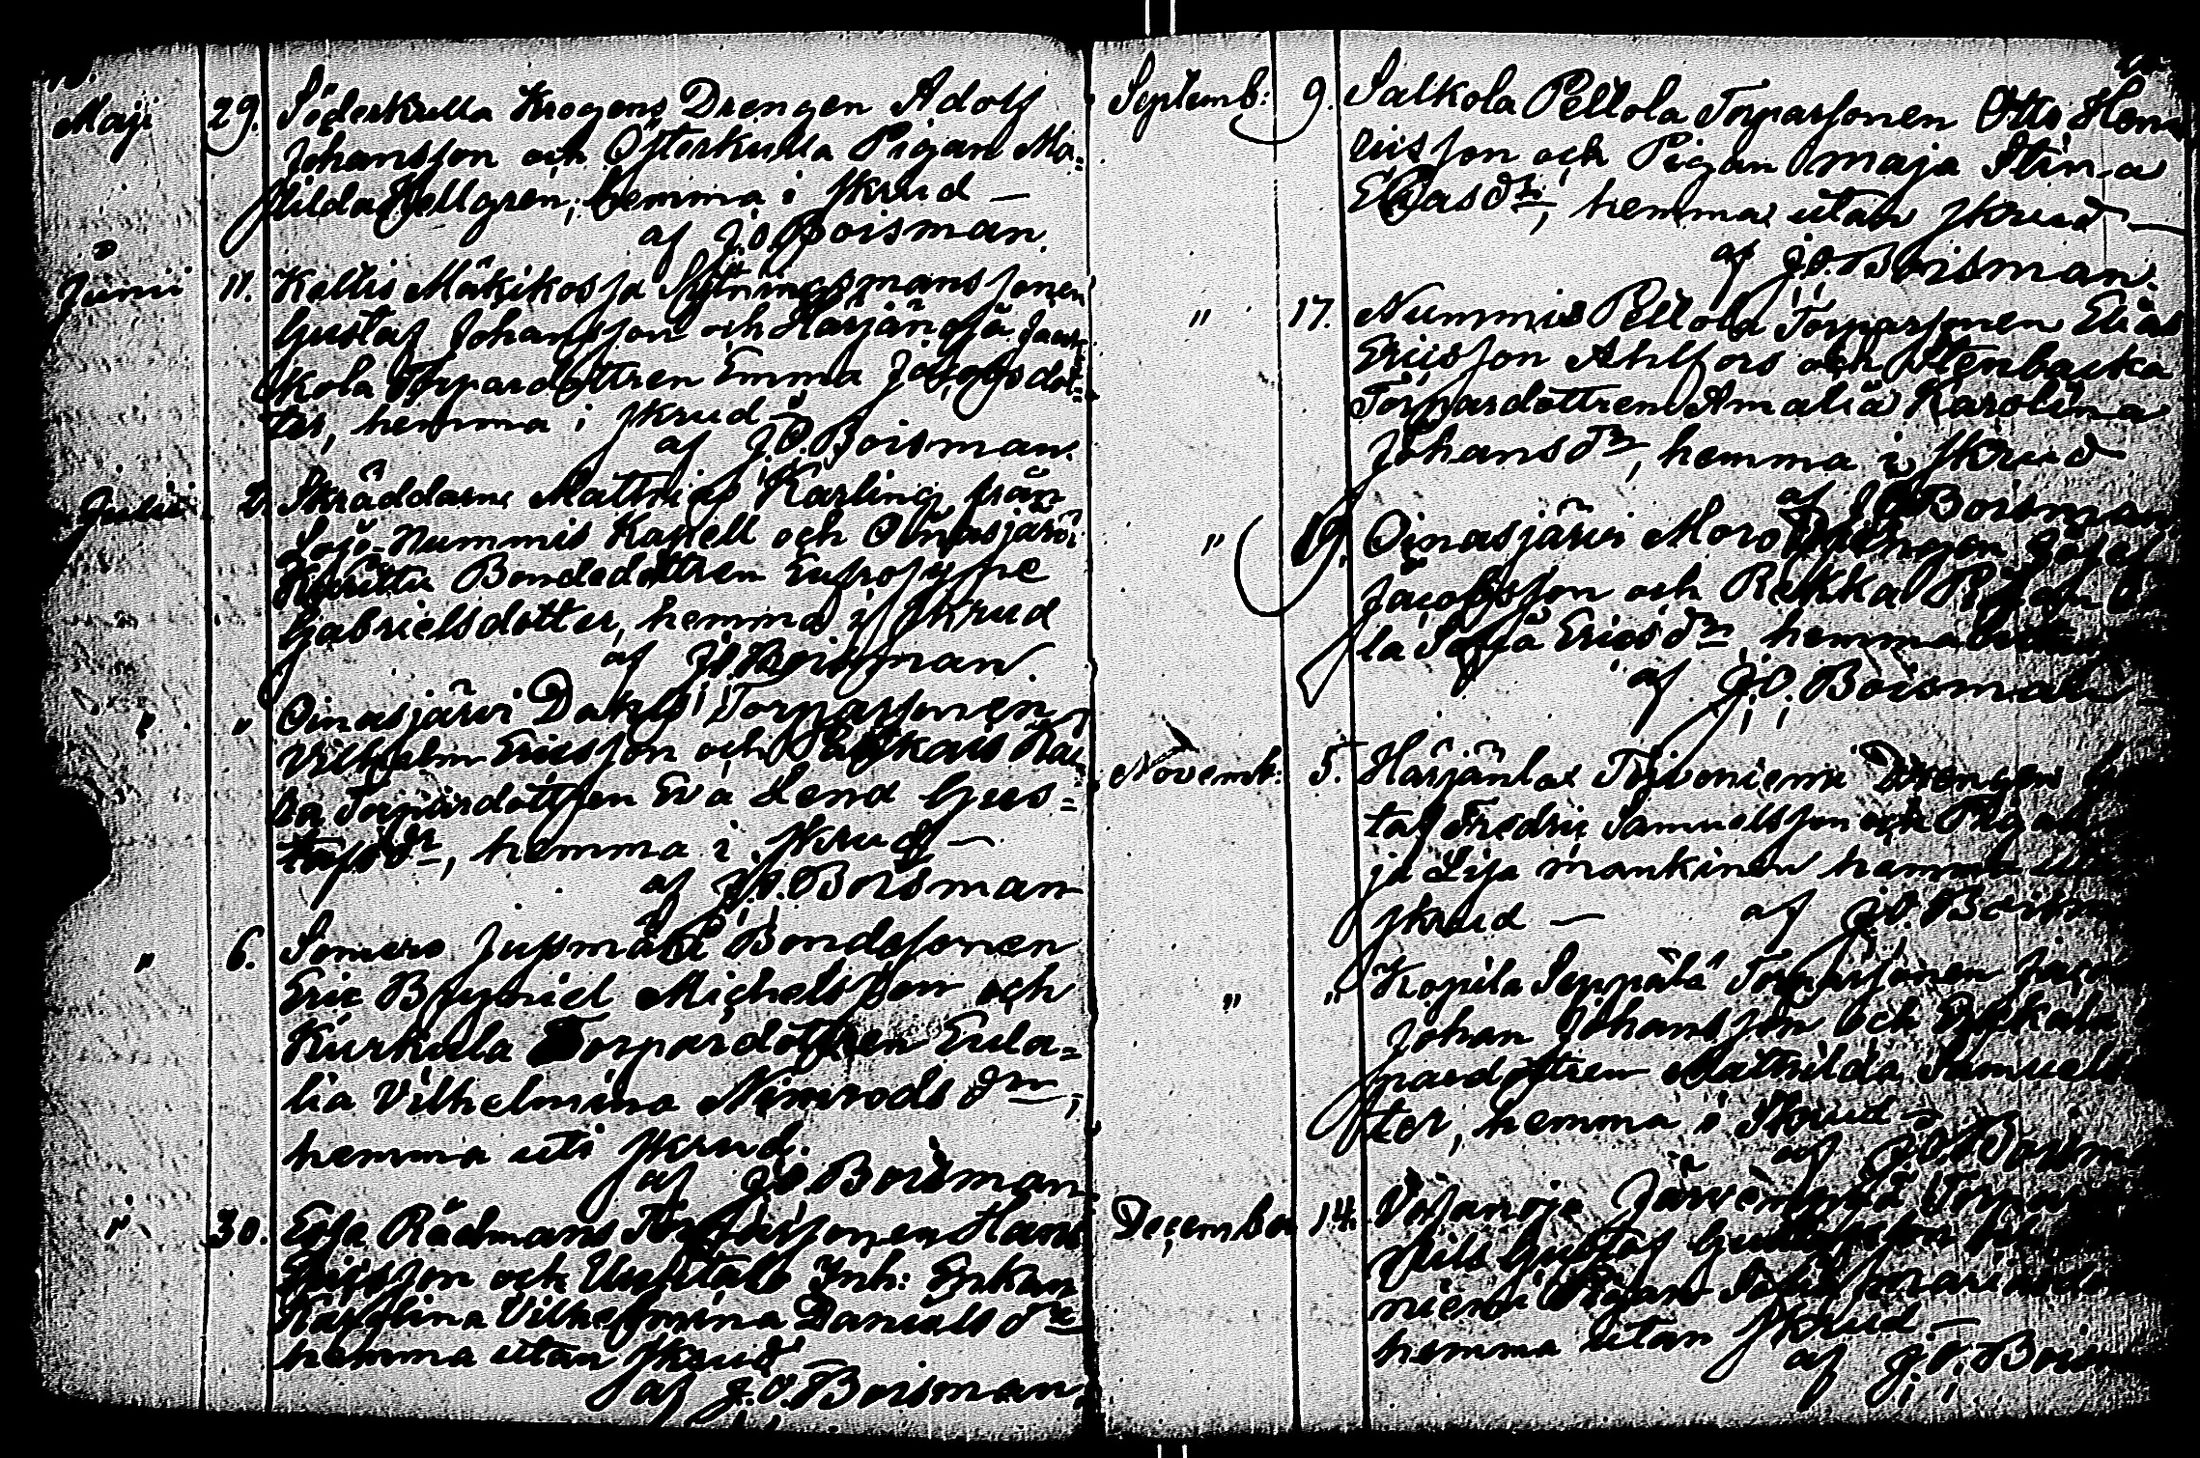 Maji 29. Söderkulla Krogens Drengen Adolf
Johansson och Österkulla Pigan Ma-
tilda Hellgren, hemma i skrud —
af J. O. Boisman.
Junii 11. Keltis Mäkikosja Sytningsmanssonen
Gustaf Johansson och Härjänoja Jaak-
kola Torpardottren Emma Jacobsdot-
ter, hemma i skrud —
af J. O. Boisman.
Julii 2. Skräddaren Mathias Karling från
Lojo-Nummis Kapell och Oinasjärvi
Bondedottren Eufrosyne
Gabrielsdotter, hemma i skrud
af J. O. Boisman.
" " Oinasjärvi Torparsonen
Vilhelm Ericsson och
Torpardottren Eva Lena Gus-
tafsdr, hemma i skrud —
af J. O. Boisman
" 6. Somero Bondesonen
Eric Michelsson och
Kurkula Torpardottren Eula-
lia Vilhelmina Nimrods dr,
hemma uti skrud.
af J. O. Boisman
" 30. Erla Rådmans Torparsonen Hans
Ericsson och Inh: Enkan
Karolina Vilhelmina Daniels dr
hemma utan skrud —
af J. O. Boisman.
Septemb: 9. Salkola Peltola Torparsonen Otto Hen-
ricsson och Pigan Maja Stina
Eliasdr, hemma utan skrud —
af J. O. Boisman.
" 17. Nummis Peltola Torparsonen Elias
Ericsson Ahlfors och Stenbacka
Torpardottren Amalia Karolina
Johansdr, hemma i skrud
af J. O. Boisman
" 19. Oinasjärvi Moro Drengen Josef
Jacobsson och Rekka Pigan
la Sofia Ericsdr, hemma
af J. O. Boisman
Novemb: 5. Härjänlax Toivoniemi Drengen
taf Fredric Samuelsson och
ja Lisa Mankinen hemma
skrud — af J. O. Boism
" " Kopila Seppälä Torparsonen
Johan Johansson och
pardottren Mathilda Samuels
ter, hemma i Skrud —
af J. O. Boism
December 14. Järvenpää
Nils Gustaf
niemi Pigan
hemma utan skrud —
af J. O. Bois